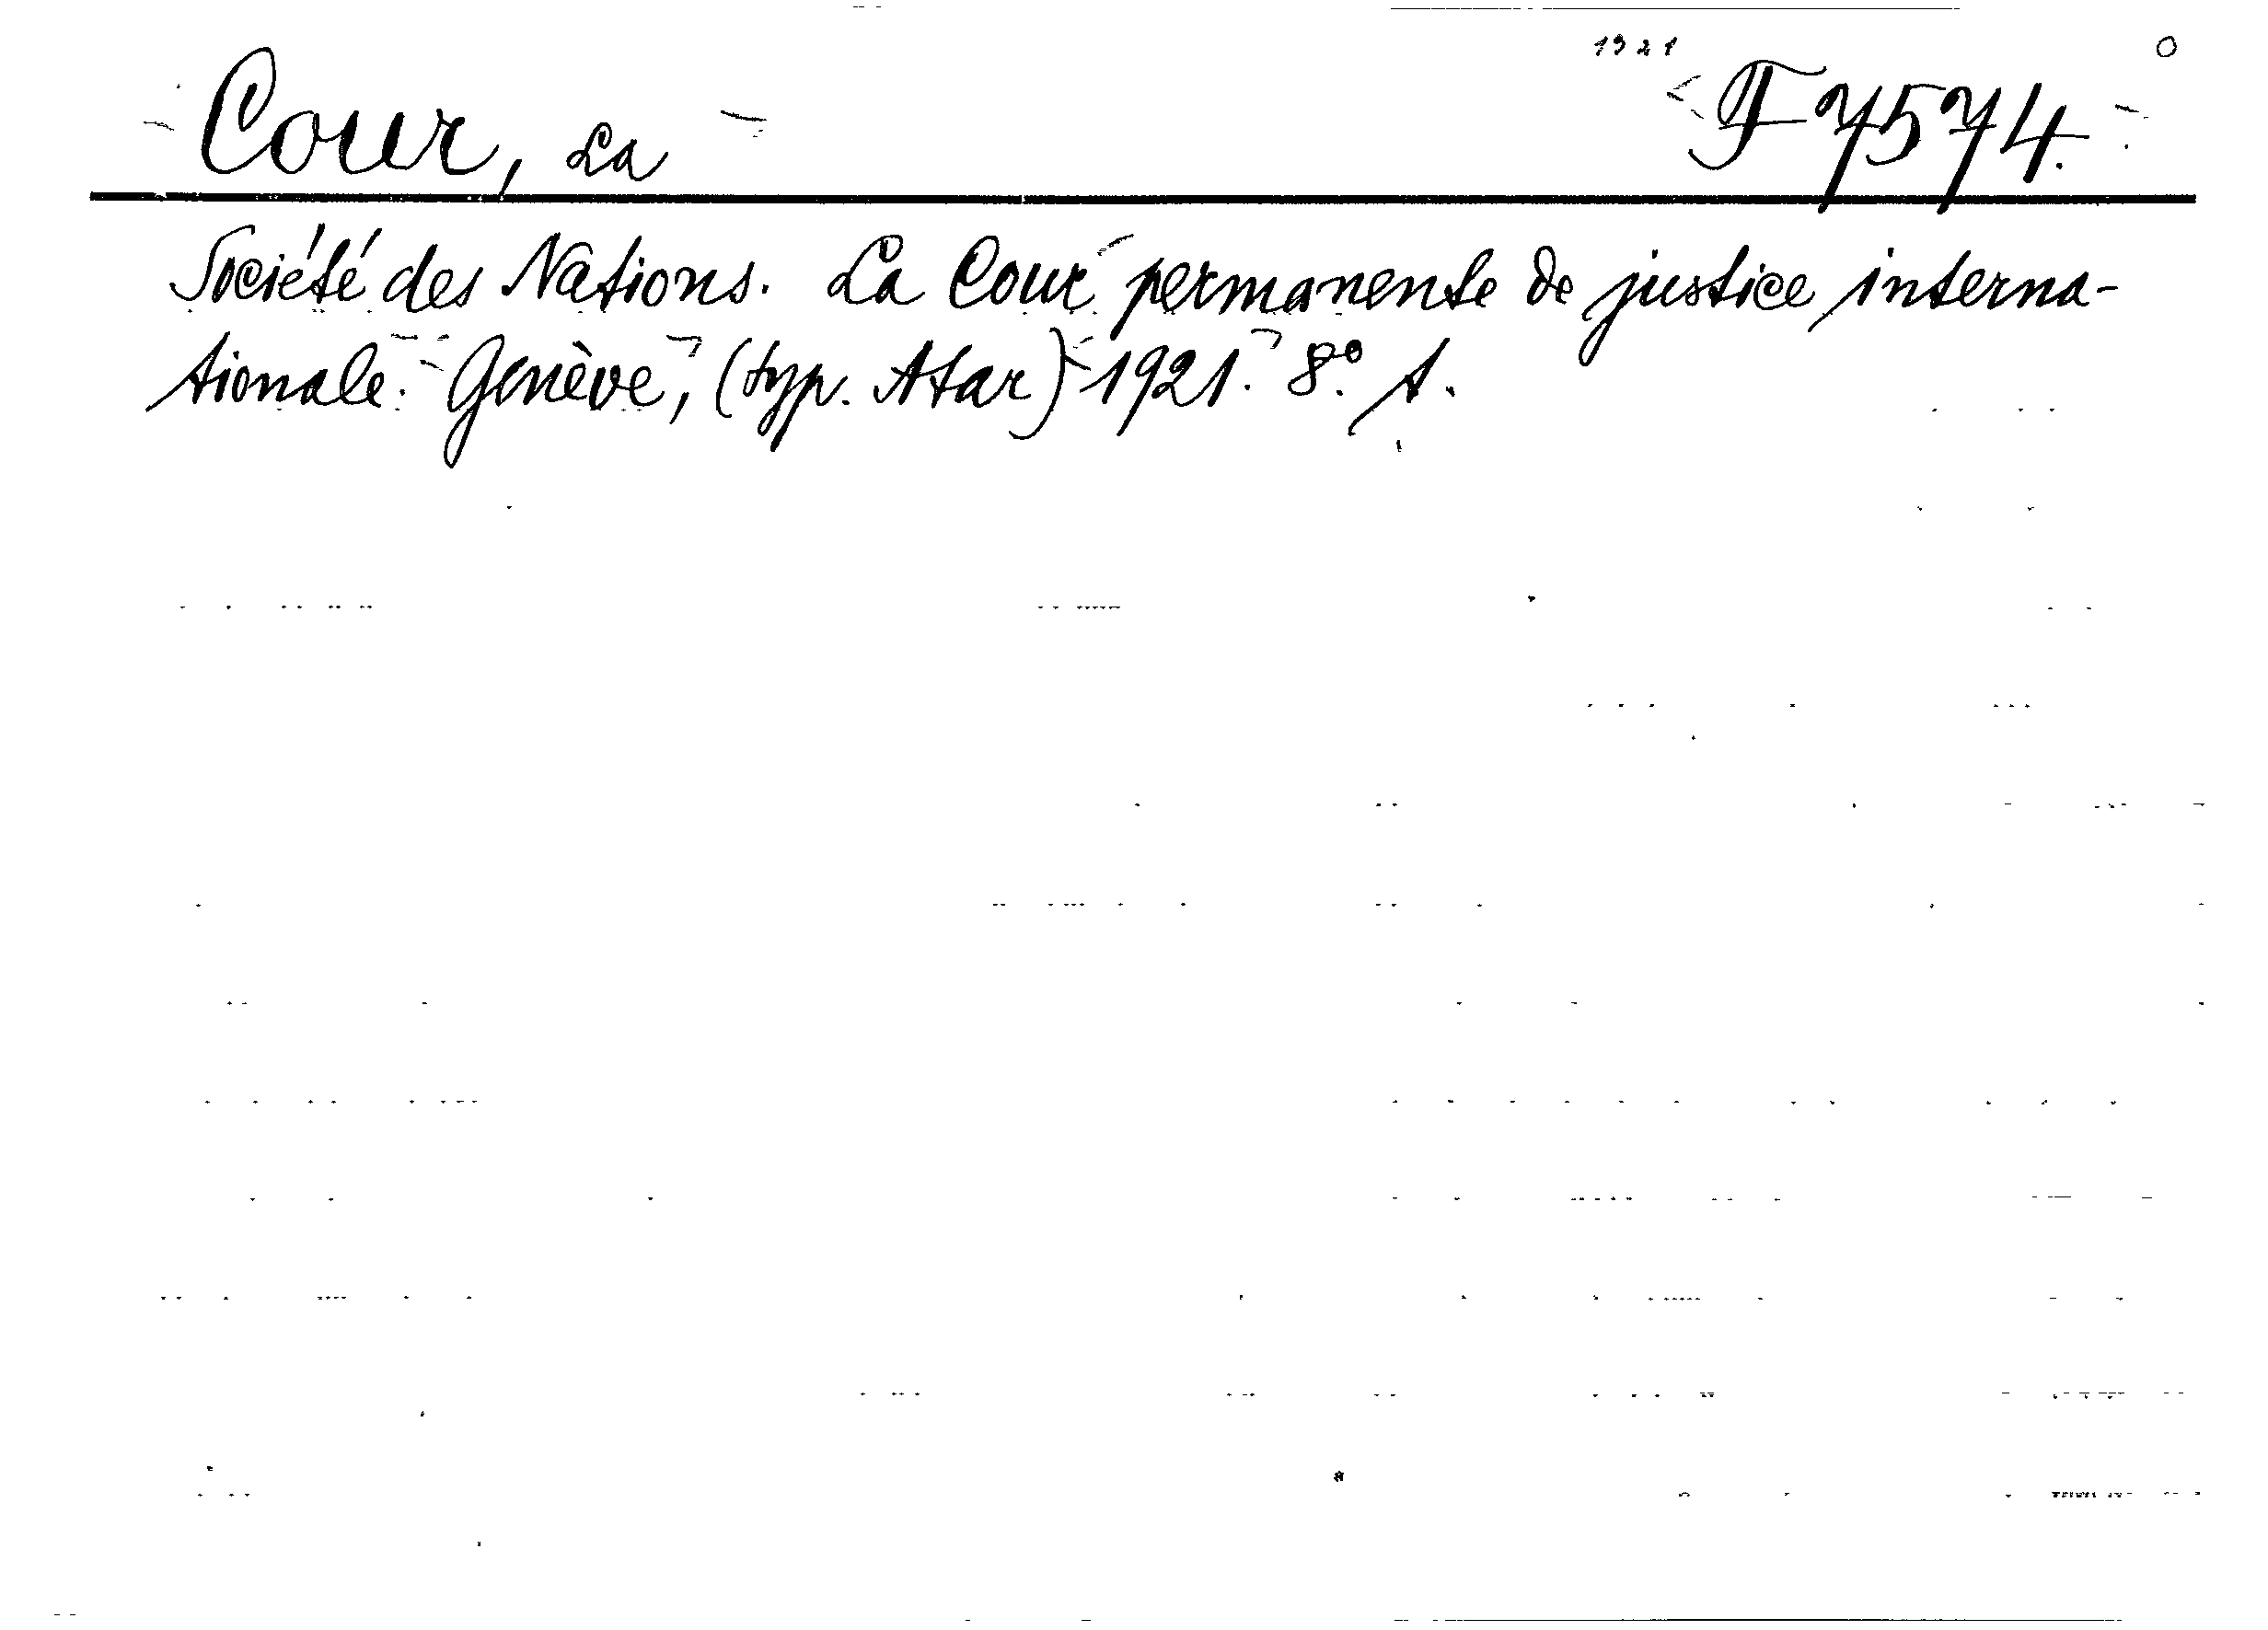 1921
Cour, La F 7574.
Société des Nations. La Cour permanente de justice interna-
tionale. Genève, (typ. Atar) 1921. 8°. A.